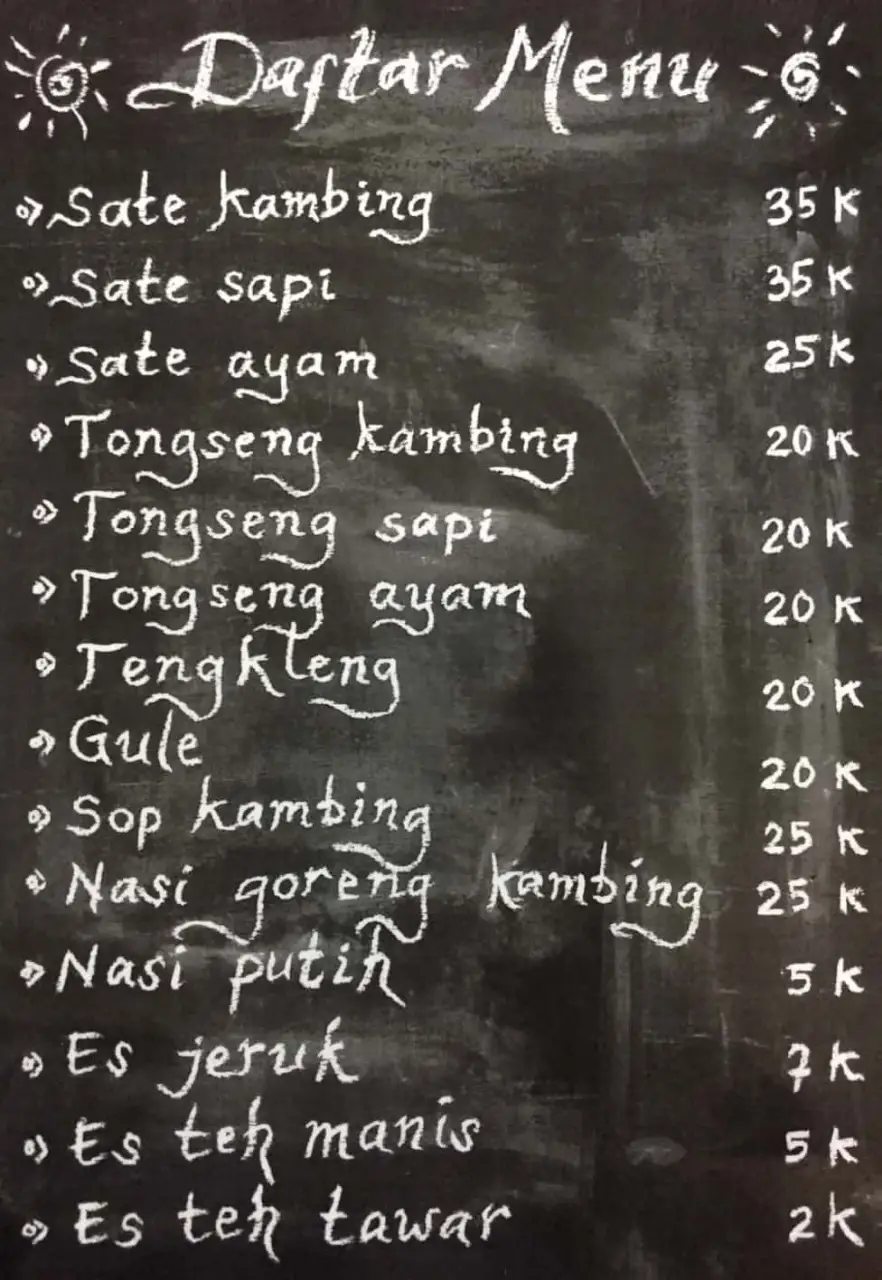 Daftar Menu
Sate kambing 35 K
Sate sapi 35 K
Sate ayam 25 K
Tongseng kambing 20 K
Tongseng sapi 20 K
Tongseng ayam 20 K
Tengkleng 20 K
Gule 20 K
Sop kambing 25 K
Nasi goreng kambing 25 K
Nasi putih 5 K
Es jeruk 7 K
Es teh manis 5 K
Es teh tawar 2 K